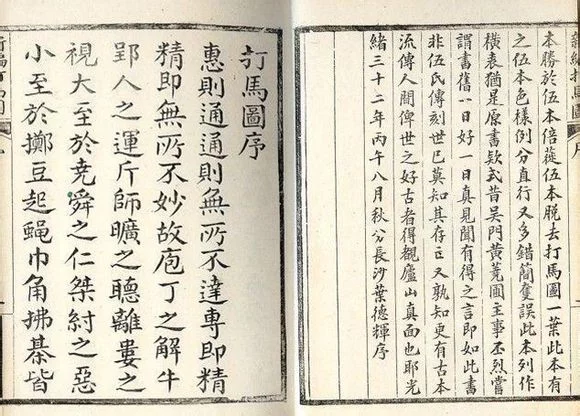 新編打馬圖 序
本勝於伍本倍蓰伍本脫去打馬圖一葉此本有
之伍本色樣例分直行又多錯簡奪誤此本列作
橫表猶是原書欵式昔吳門黃蕘圃主事丕烈嘗
謂書舊一日好一日真見聞有得之言即如此書
非伍氏傳刻世已莫知其存亡又孰知更有古本
流傳人間俾世之好古者得觀廬山真面也耶光
緒三十二年丙午八月秋分長沙葉德輝序
打馬圖序
惠則通通則無所不達專即精
精即無所不妙故庖丁之解牛
郢人之運斤師曠之聽離婁之
視大至於堯舜之仁桀紂之惡
小至於擲豆起蠅巾角拂棊皆